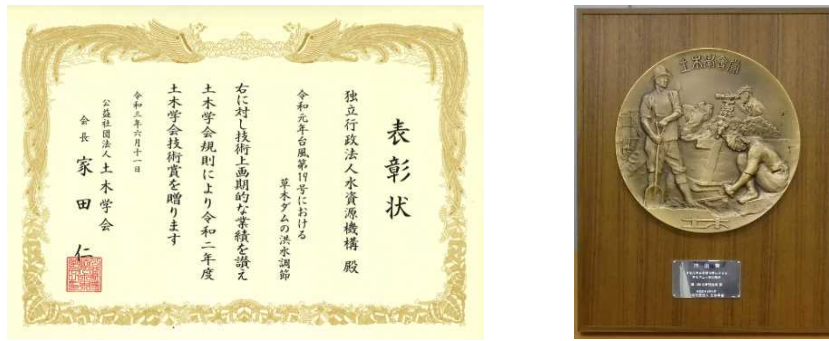 表彰状
独立行政法人水資源機構 殿
令和元年台風第19号における
草木ダムの洪水調節
右に対し技術上画期的な業績を讃え
土木学会規則により令和二年度
土木学会技術賞を贈ります
令和三年六月十一日
公益社団法人 土木学会
会長 家田 仁
土木学会賞
土木
技術賞